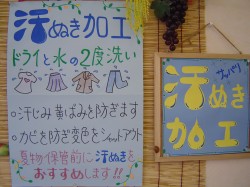 汗ぬき加工
ドライと水の2度洗い
○汗じみ黄ばみを防ぎます
○カビを防ぎ変色をシャットアウト
夏物保管前に汗ぬきを
おすすめします!!
サッパリ
汗ぬき
加工